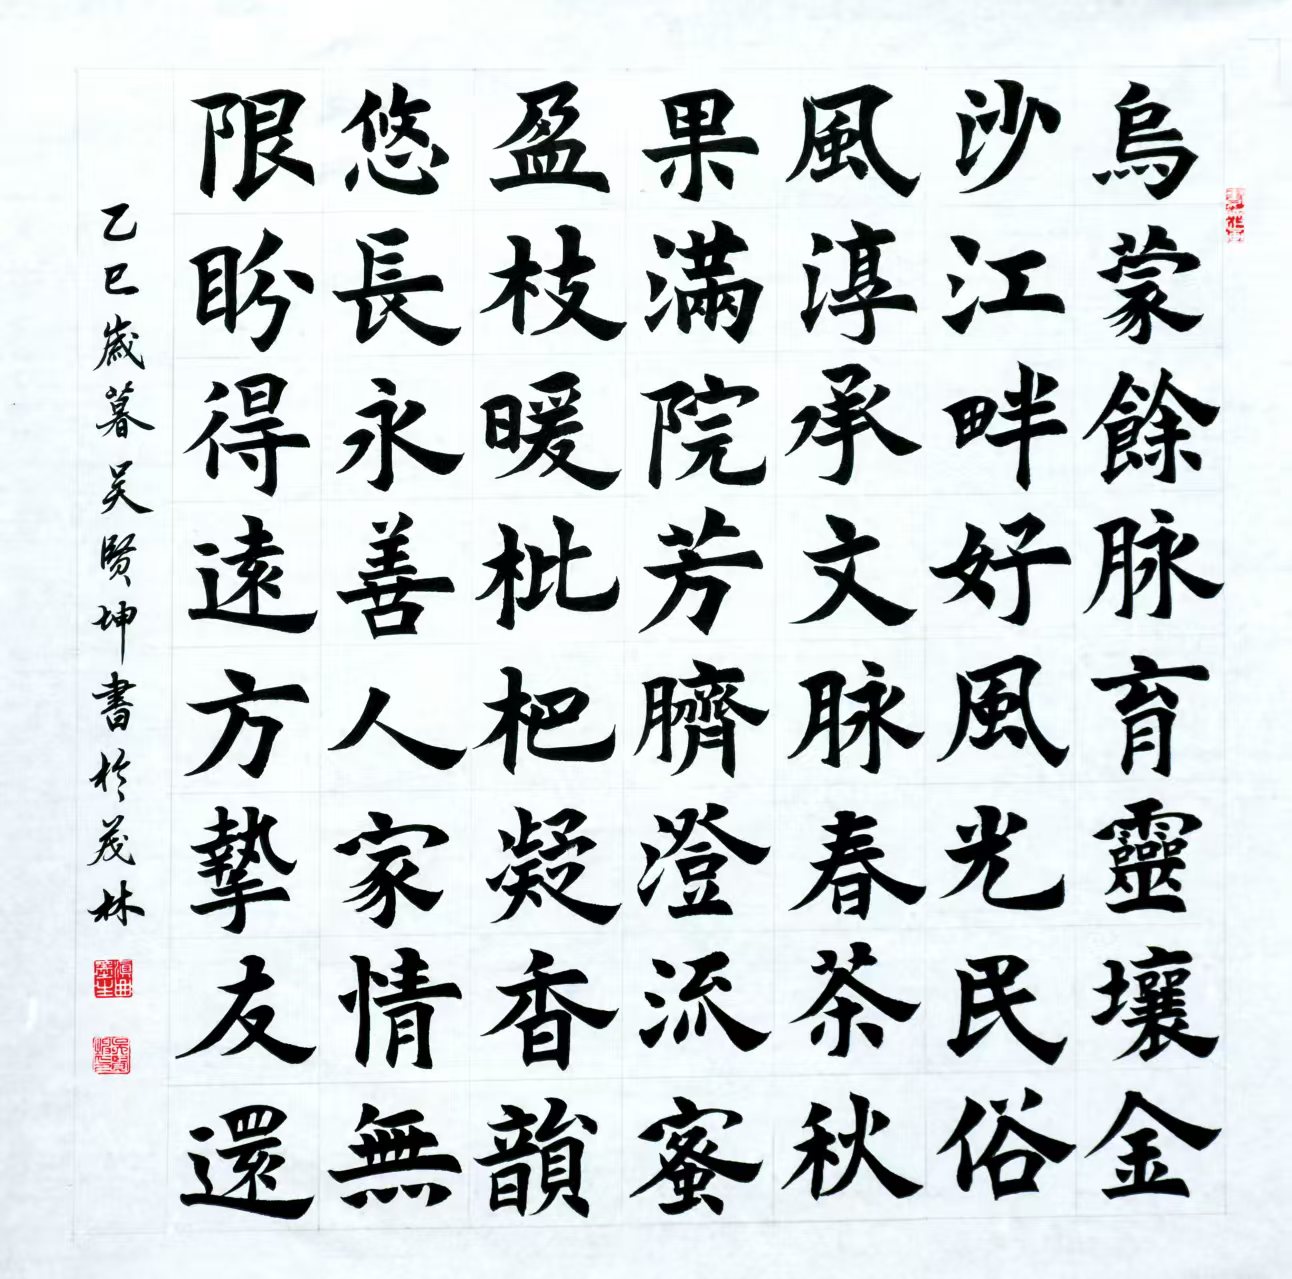 烏蒙餘脉育靈壤金
沙江畔好風光民俗
風淳承文脉春茶秋
果滿院芳臍澄流蜜
盈枝暖枇杷凝香韻
悠長永善人家情無
限盼得遠方摯友還
乙巳歲暮吴賢坤書於茂林